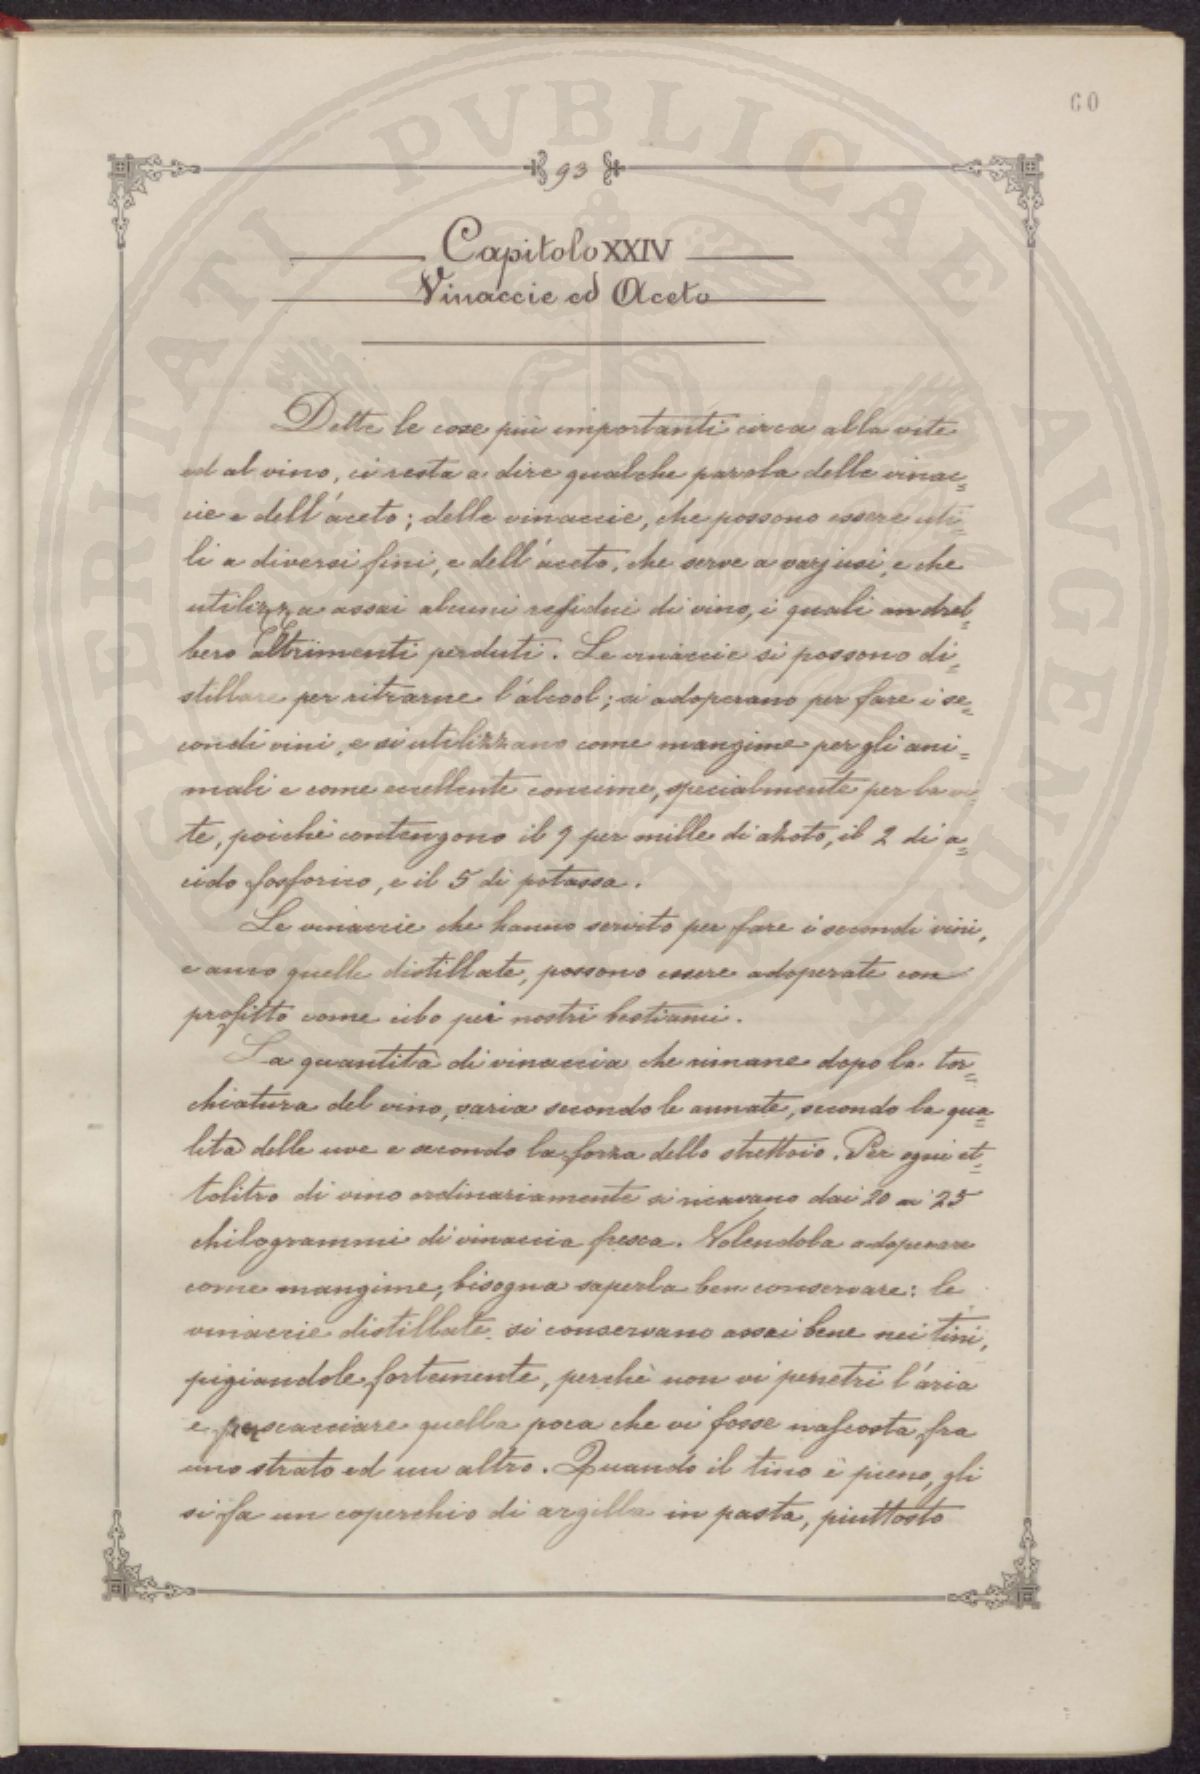 60
93
Capitolo XXIV
Vinaccie ed Aceto
Dette le cose più importanti circa alla vite
ed al vino, ci resta a dire qualche parola delle vinac=
cie e dell'aceto; delle vinaccie, che possono essere uti=
li a diversi fini, e dell'aceto, che serve a varj usi, e che
utilizza assai alcuni residui di vino, i quali andreb
bero altrimenti perduti. Le vinaccie si possono di=
stillare per ritrarne l'alcool; si adoperano per fare i se=
condi vini, e si utilizzano come mangime per gli ani=
mali e come eccellente concime, specialmente per la vi=
te, poichè contengono il 9 per mille di azoto, il 2 di a=
cido fosforico, e il 5 di potassa.
Le vinaccie che hanno servito per fare i secondi vini,
e anco quelle distillate, possono essere adoperate con
profitto come cibo pei nostri bestiami.
La quantità di vinaccia che rimane dopo la tor=
chiatura del vino, varia secondo le annate, secondo la qua=
lità delle uve e secondo la forza dello strettoio. Per ogni et=
tolitro di vino ordinariamente si ricavano dai 20 ai 25
chilogrammi di vinaccia fresca. Volendola adoperare
come mangime, bisogna saperla ben conservare: le
vinaccie distillate si conservano assai bene nei tini,
pigiandole fortemente, perchè non vi penetri l'aria
e per scacciare quella poca che vi fosse nascosta fra
uno strato ed un altro. Quando il tino è pieno, gli
si fa un coperchio di argilla in pasta, piuttosto
PROSPERITATI PVBLICAE AVGENDAE